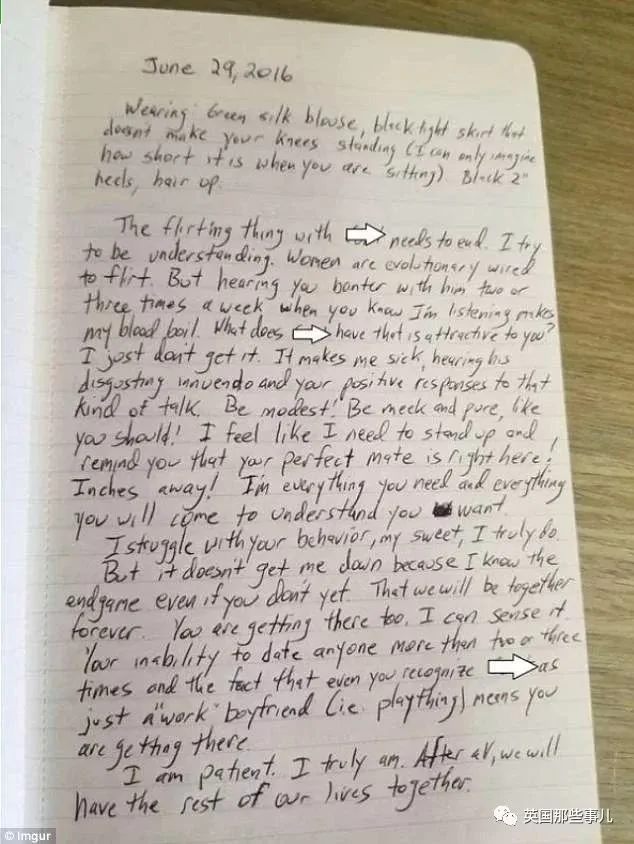 June 29, 2016
Wearing: Green silk blouse, black tight skirt that
doesn't make your knees standing (I can only imagine
how short it is when you are sitting) Black 2"
heels, hair up.
The flirting thing with needs to end. I try
to be understanding. Women are evolutionary wired
to flirt. But hearing you banter with him two or
three times a week when you know I'm listening makes
my blood boil. What does have that is attractive to you?
I just don't get it. It makes me sick, hearing his
disgusting innuendo and your positive responses to that
kind of talk. Be modest! Be meek and pure, like
you should! I feel like I need to stand up and
remind you that your perfect mate is right here!
Inches away! I'm everything you need and everything
you will come to understand you want.
I struggle with your behavior, my sweet, I truly do.
But it doesn't get me down because I know the
endgame even if you don't yet. That we will be together
forever. You are getting there too. I can sense it.
Your inability to date anyone more than two or three
times and the fact that even you recognize as
just a "work" boyfriend (i.e. plaything) means you
are getting there.
I am patient. I truly am. After all, we will
have the rest of our lives together.
© Imgur
英国那些事儿